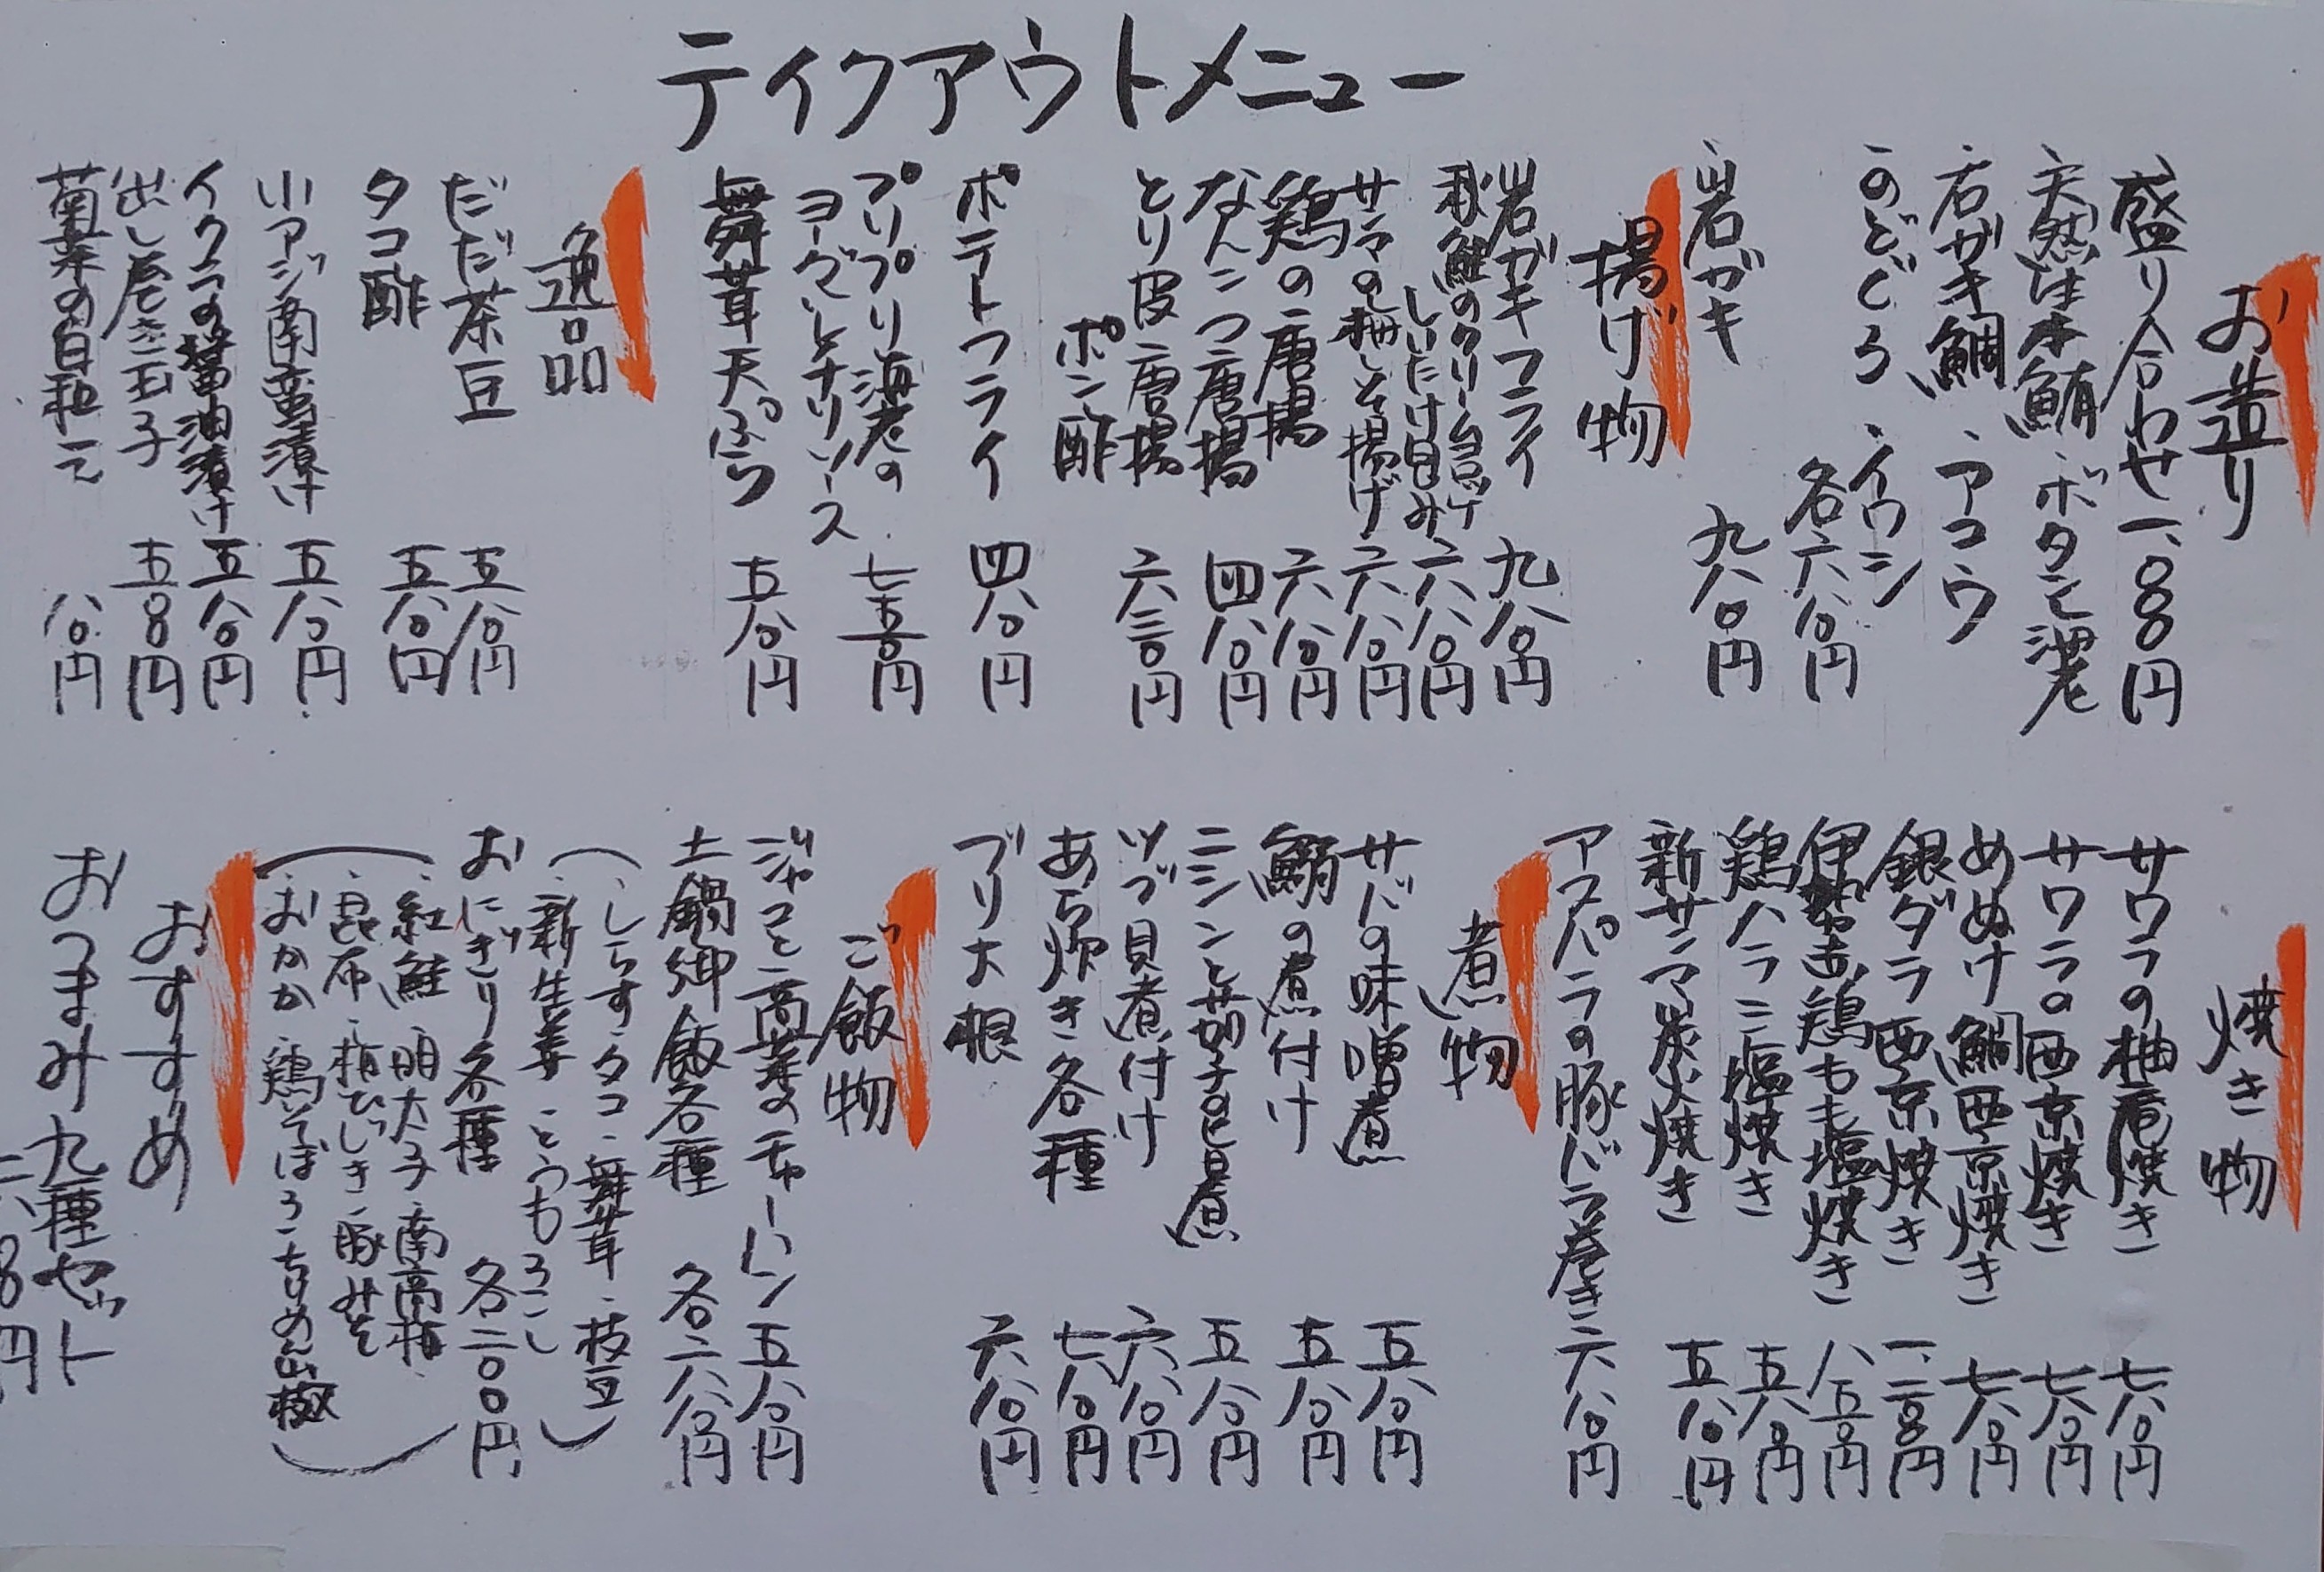 ティクアウトメニュー
お造り
盛り合わせ 一、〇〇〇円
・天然生本鮪 ・ボタン海老
・石ガキ鯛 ・アコウ
・のどぐろ ・イワシ
各六八〇円
・岩ガキ 九八〇円
揚げ物
岩ガキフライ 九八〇円
秋鮭のクリームコロッケ
しいたけ包み 六八〇円
サンマの梅しそ揚げ 六八〇円
鶏の唐揚 六八〇円
なんこつ唐揚 四八〇円
とり皮唐揚
ポン酢 六三〇円
ポテトフライ 四八〇円
プリプリ海老の
ヨーグルトチリソース 七五〇円
舞茸天ぷら 五八〇円
逸品
だだ茶豆 五八〇円
タコ酢 五八〇円
小アジ南蛮漬け 五八〇円
イクラの醤油漬け 五八〇円
出し巻き玉子 五〇〇円
菊菜の白和え 八〇円
焼き物
サワラの柚庵焼き 七八〇円
サワラの西京焼き 七八〇円
めぬけ鯛西京焼き 七八〇円
銀ダラ西京焼き 一、二〇〇円
伊勢赤鶏もも塩焼き 八五〇円
鶏ハラミ塩焼き 五八〇円
新サンマ炭火焼き 五八〇円
アスパラの豚バラ巻き 六八〇円
煮物
サバの味噌煮 五八〇円
鰯の煮付け 五八〇円
ニシンと茄子の煮 五八〇円
ツブ貝煮付け 六八〇円
あら炊き各種 七八〇円
ブリ大根 六八〇円
ご飯物
ジャコと高菜のチャーハン 五八〇円
土鍋御飯各種 各二、八八〇円
(・しらす・タコ・舞茸・枝豆
・新生姜 とうもろこし)
おにぎり各種 各二〇〇円
(・紅鮭・明太子・南高梅
・昆布・梅ひじき・豚みそ
・おかか・鶏そぼろ・ちりめん山椒)
おすすめ
おつまみ九種セット